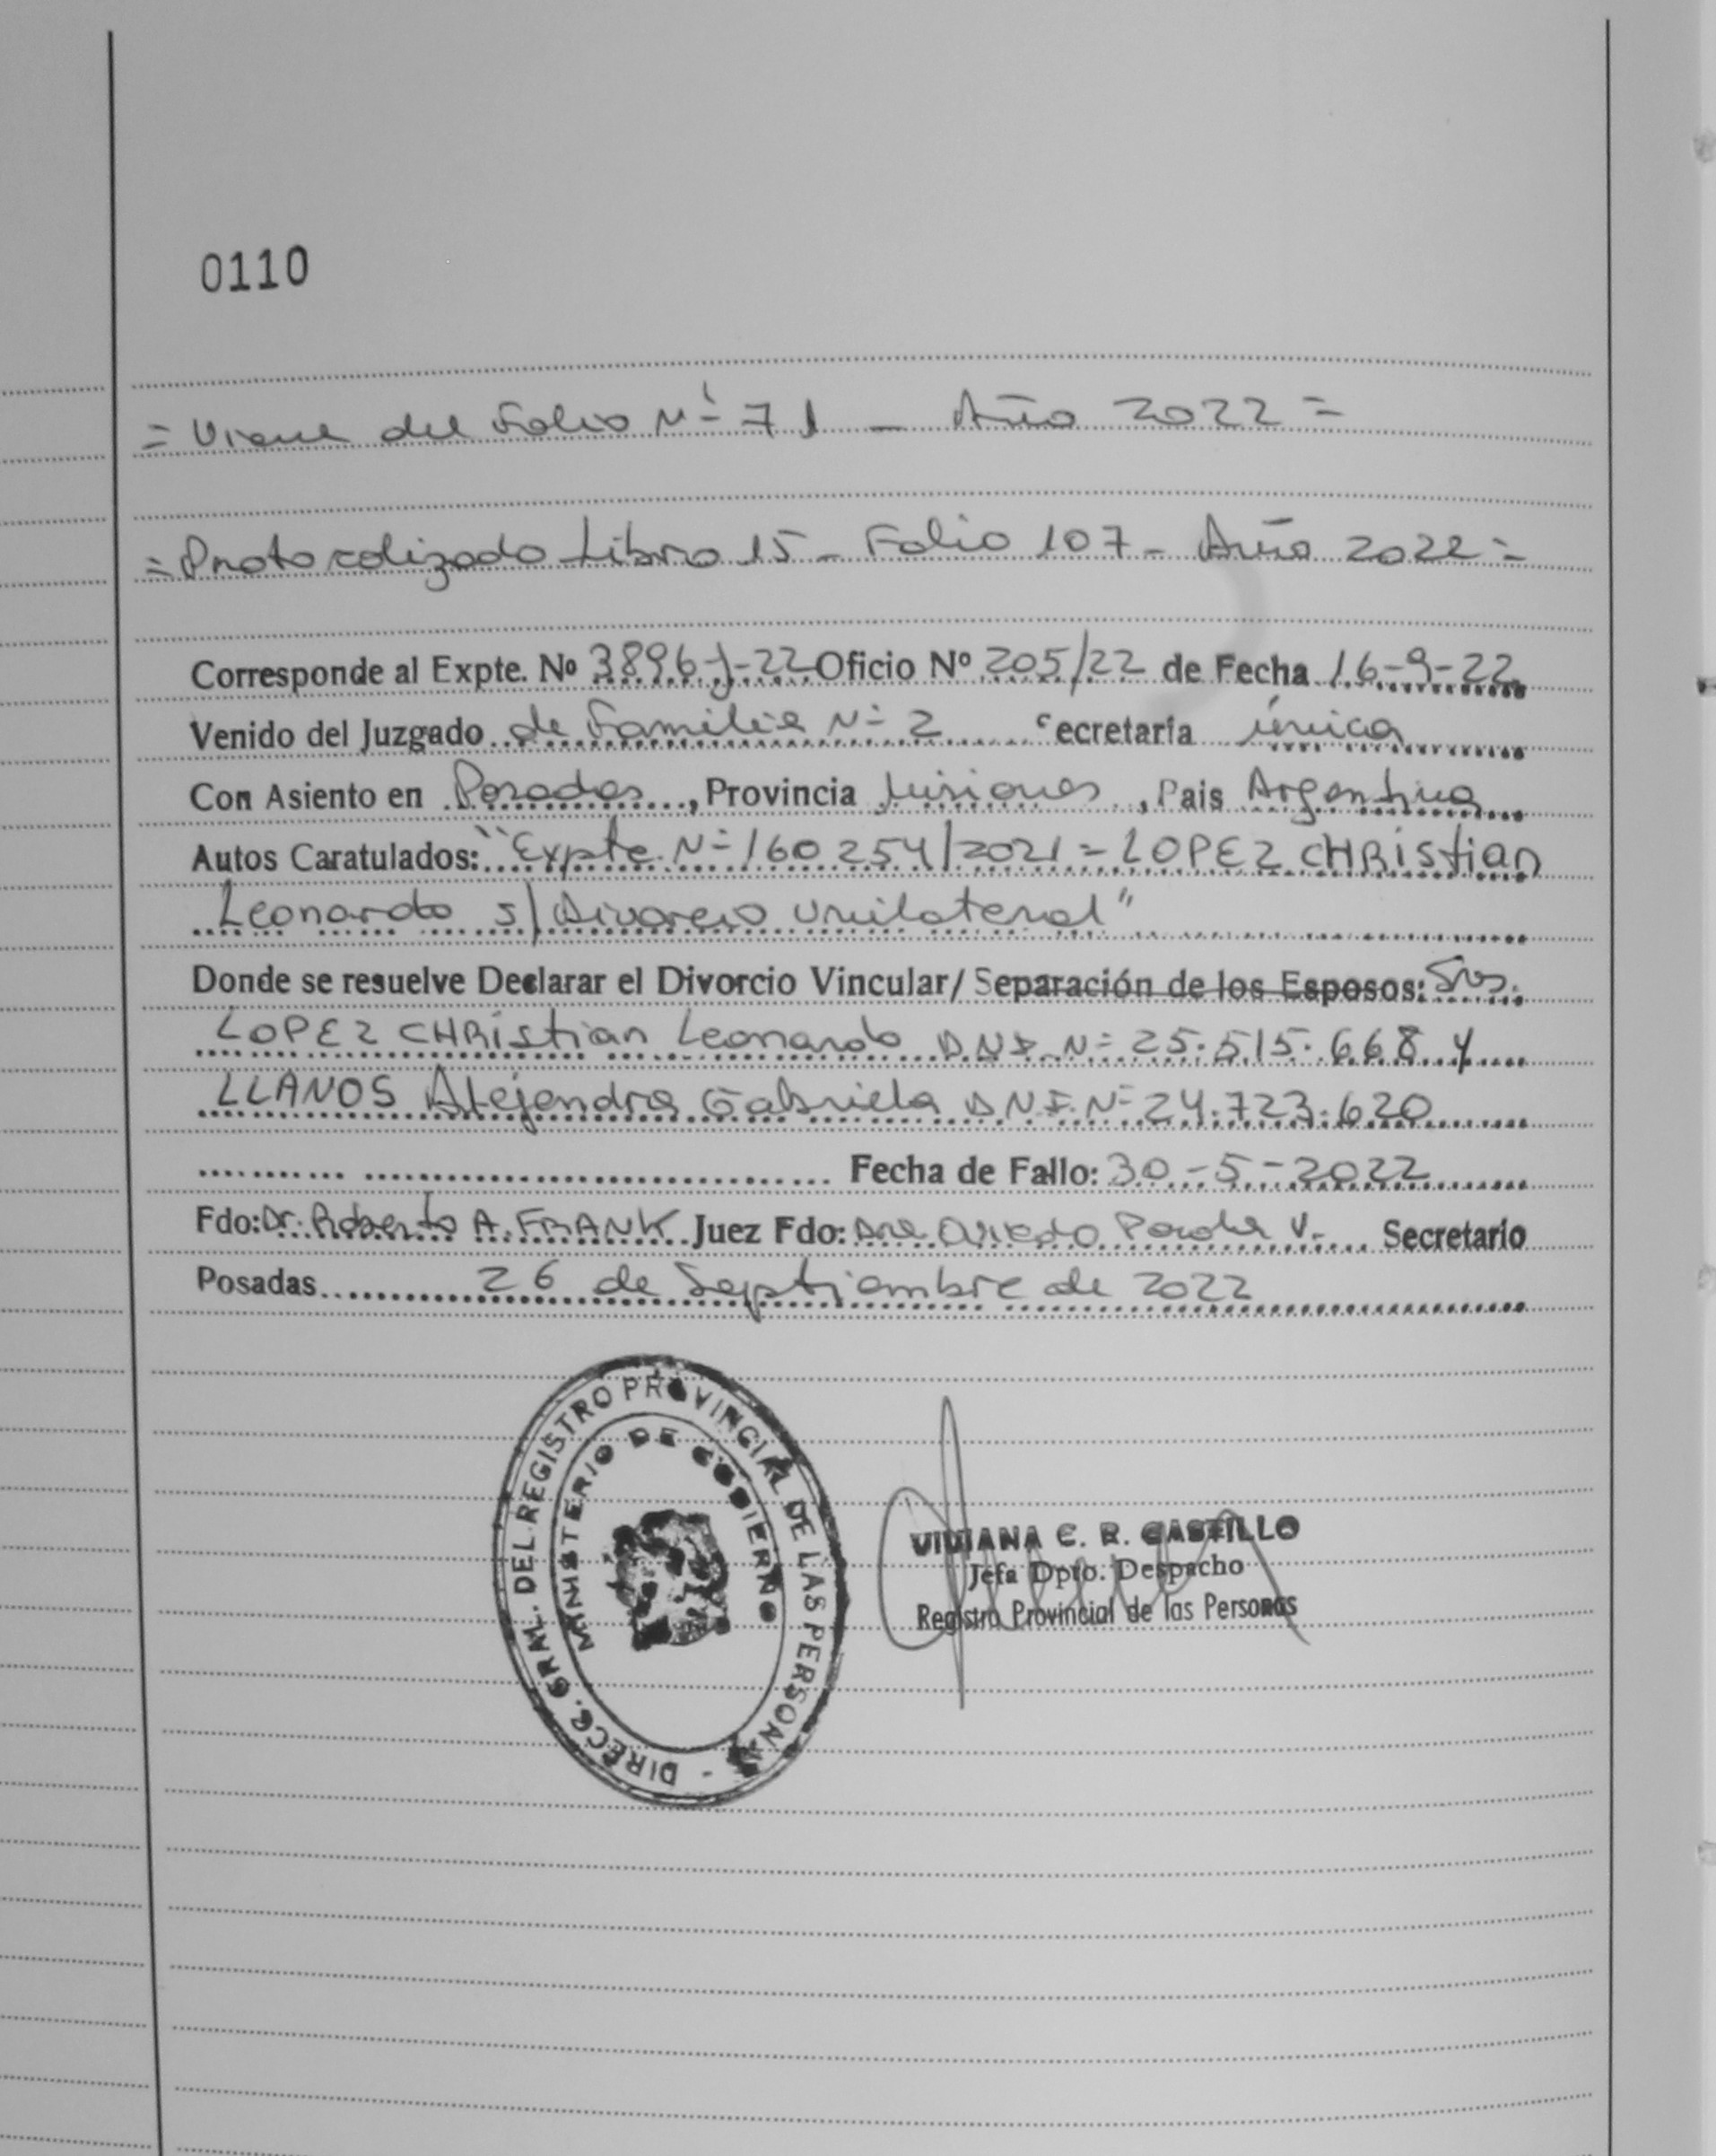 0110
= Viene del Folio Nº 71 _ Año 2022 =
= Protocolizado Libro 15 - Folio 107 - Año 2022 =
Corresponde al Expte. Nº 3896-J-22 Oficio Nº 205/22 de Fecha 16-9-22
Venido del Juzgado de Familia Nº 2 Secretaría única
Con Asiento en Posadas, Provincia Misiones, Pais Argentina
Autos Caratulados: "Expte. Nº 160254/2021 = LOPEZ CHRistian
Leonardo s/ Divorcio Unilateral"
Donde se resuelve Declarar el Divorcio Vincular/ Separación de los Esposos: Srs.
LOPEZ CHRistian Leonardo DNI Nº 25.515.668 y
LLANOS Alejandra Gabriela DNI Nº 24.723.620
Fecha de Fallo: 30-5-2022
Fdo: Dr. Roberto A. FRANK Juez Fdo: Dra. Oviedo Paola V. Secretario
Posadas 26 de Septiembre de 2022
DIRECC. GRAL. DEL REGISTRO PROVINCIAL DE LAS PERSONAS -
MINISTERIO DE GOBIERNO
VIVIANA C. R. CASTILLO
Jefa Dpto. Despacho
Registro Provincial de las Personas